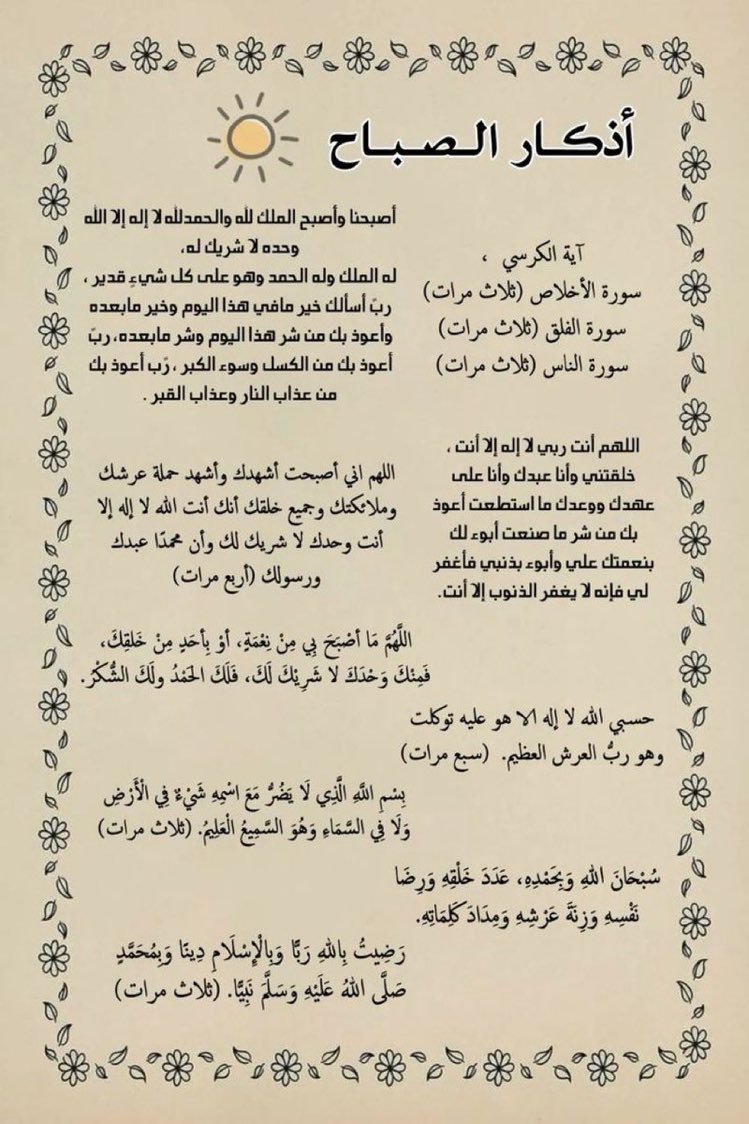 أذكار الصباح
آية الكرسي ،
سورة الأخلاص (ثلاث مرات)
سورة الفلق (ثلاث مرات)
سورة الناس (ثلاث مرات)
أصبحنا وأصبح الملك لله والحمدلله لا إله إلا الله
وحده لا شريك له،
له الملك وله الحمد وهو على كل شيءٍ قدير ،
ربّ أسألك خير مافي هذا اليوم وخير مابعده
وأعوذ بك من شر هذا اليوم وشر مابعده، ربّ
أعوذ بك من الكسل وسوء الكبر ، رّب أعوذ بك
من عذاب النار وعذاب القبر .
اللهم أنت ربي لا إله إلا أنت ،
خلقتني وأنا عبدك وأنا على
عهدك ووعدك ما استطعت أعوذ
بك من شر ما صنعت أبوء لك
بنعمتك علي وأبوء بذنبي فأغفر
لي فإنه لا يغفر الذنوب إلا أنت.
اللهم اني أصبحت أشهدك وأشهد حملة عرشك
وملائكتك وجميع خلقك أنك أنت الله لا إله إلا
أنت وحدك لا شريك لك وأن محمدًا عبدك
ورسولك (أربع مرات)
اللَّهُمَّ مَا أصْبَحَ بِي مِنْ نِعْمَةٍ، أوْ بِأحَدٍ مِنْ خَلقِكَ،
فَمِنْكَ وَحْدَكَ لا شَرِيْكَ لَكَ، فَلَكَ الحَمْدُ ولَكَ الشُّكْرُ.
حسبي الله لا إله الا هو عليه توكلت
وهو ربُّ العرش العظيم. (سبع مرات)
بِسْمِ اللَّهِ الَّذِي لَا يَضُرُّ مَعَ اسْمِهِ شَيْءٌ فِي الْأَرْضِ
وَلَا فِي السَّمَاءِ وَهُوَ السَّمِيعُ الْعَلِيمُ. (ثلاث مرات)
سُبْحَانَ اللهِ وَبِحَمْدِهِ، عَدَدَ خَلْقِهِ وَرِضَا
نَفْسِهِ وَزِنَةَ عَرْشِهِ وَمِدَادَ كَلِمَاتِهِ.
رَضِيتُ بِاللهِ رَبًّا وَبِالْإِسْلَامِ دِينًا وَبِمُحَمَّدٍ
صَلَّى اللهُ عَلَيْهِ وَسَلَّمَ نَبِيًّا. (ثلاث مرات)